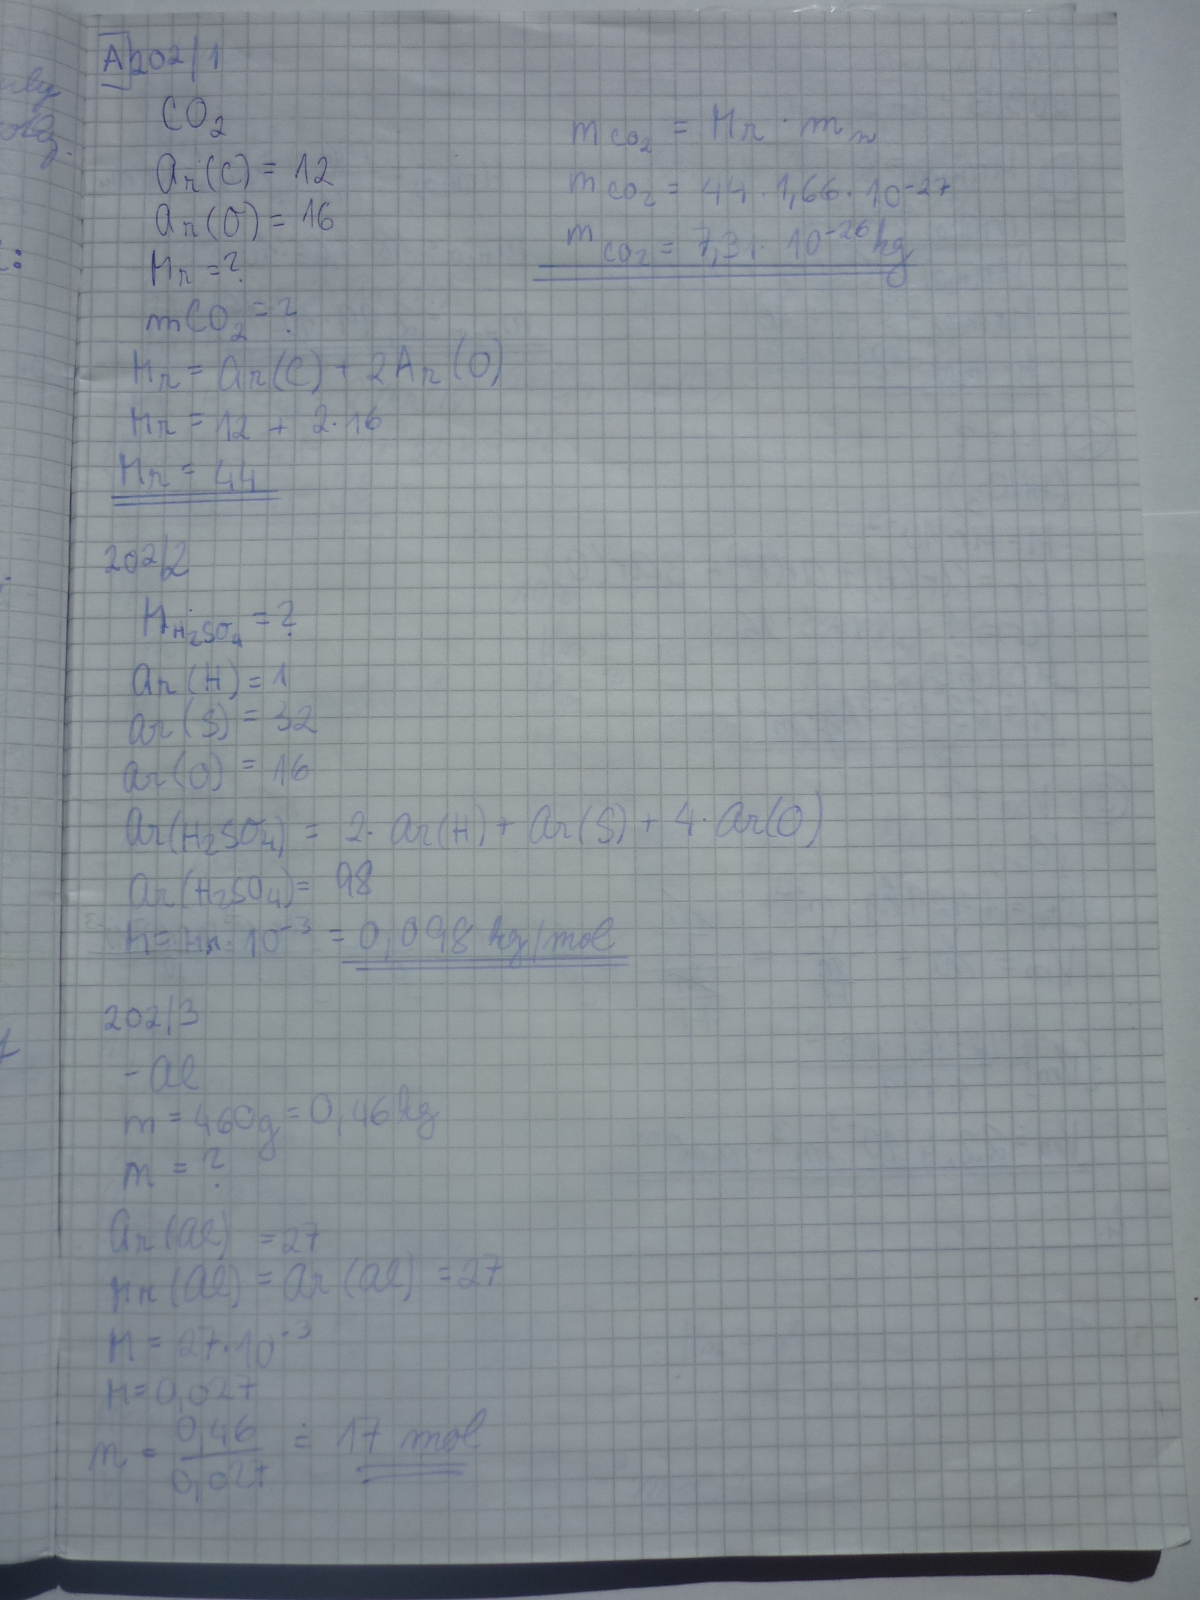 A 202/1
CO2
Ar(C) = 12
Ar(O) = 16
Mr = ?
mCO2 = ?
Mr = Ar(C) + 2Ar(O)
Mr = 12 + 2·16
Mr = 44
m CO2 = Mr · mu
m CO2 = 44·1,66·10-27
m CO2 = 7,31·10-26 kg
202/2
MH2SO4 = ?
Ar(H) = 1
Ar(S) = 32
Ar(O) = 16
Ar(H2SO4) = 2·Ar(H) + Ar(S) + 4·Ar(O)
Ar(H2SO4) = 98
M = Mr·10-3 = 0,098 kg/mol
202/3
- Al
m = 460g = 0,46kg
n = ?
Ar(Al) = 27
Mr(Al) = Ar(Al) = 27
M = 27·10-3
M = 0,027
n = 0,46 / 0,027 ≐ 17 mol